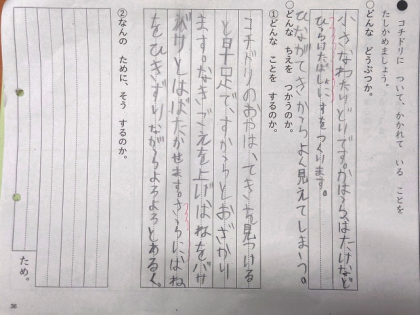 ●コチドリに ついて、かかれて いる ことを
たしかめましょう。
○どんな どうぶつか。
小さなわたりどりです。かわら、はたけなど
ひらけたばしょにすをつくります。
ひながてきからよく見えてしまう。
○どんな ちえを つかうのか。
①どんな ことを するのか。
コチドリのおやは、てきを見つける
と早足で、すからとおざかり
ます。なきごえを上げ、はねをバサ
バサとはばたかせます。さらに、はね
をひきずりながらよろよろとあるく。
②なんの ために、そう するのか。
ため。
36